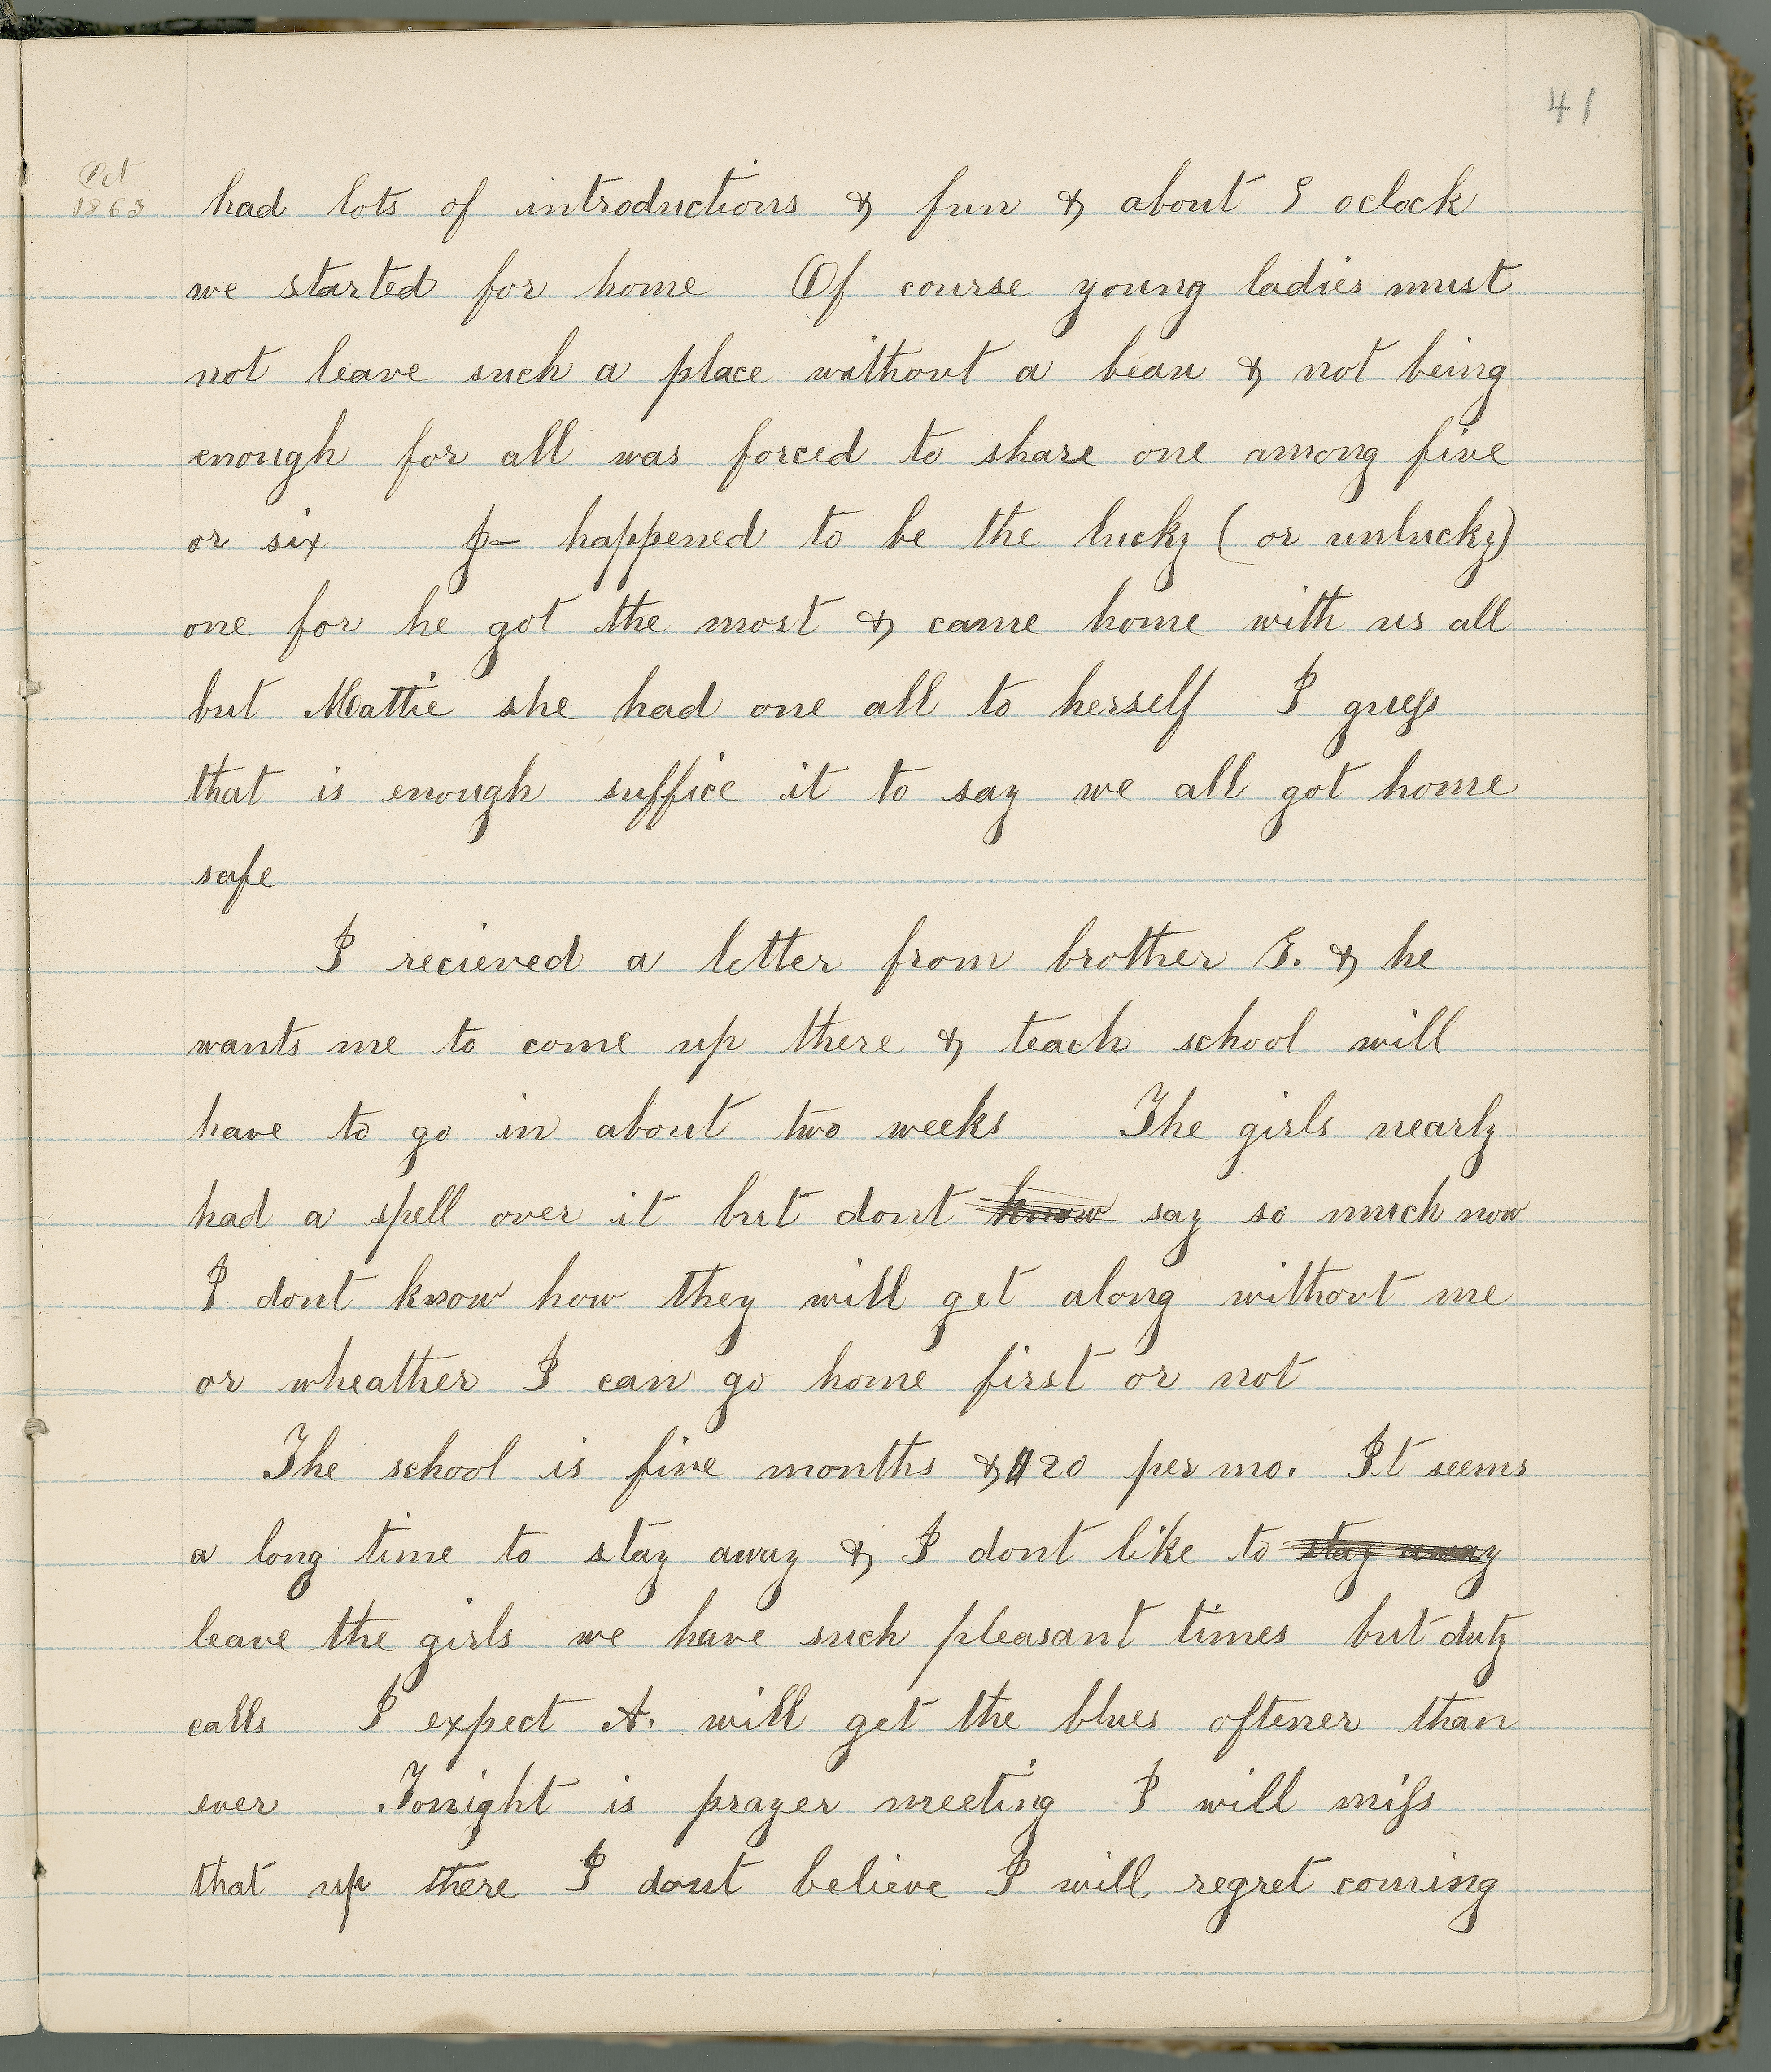 41
Oct
1863
had lots of introductions & fun & about 9 oclock
we started for home Of course young ladies must
not leave such a place without a beau & not being
enough for all was forced to share one among five
or six P— happened to be the lucky (or unlucky)
one for he got the most & came home with us all
but Mattie she had one all to herself I guess
that is enough suffice it to say we all got home
safe
I recieved a letter from brother G. & he
wants me to come up there & teach school will
have to go in about two weeks The girls nearly
had a spell over it but dont know say so much now
I dont know how they will get along without me
or wheather I can go home first or not
The school is five months & 20 per mo. It seems
a long time to stay away & I dont like to stay away
leave the girls we have such pleasant times but duty
calls I expect A. will get the blues oftener than
ever Tonight is prayer meeting I will miss
that up there I dont believe I will regret coming